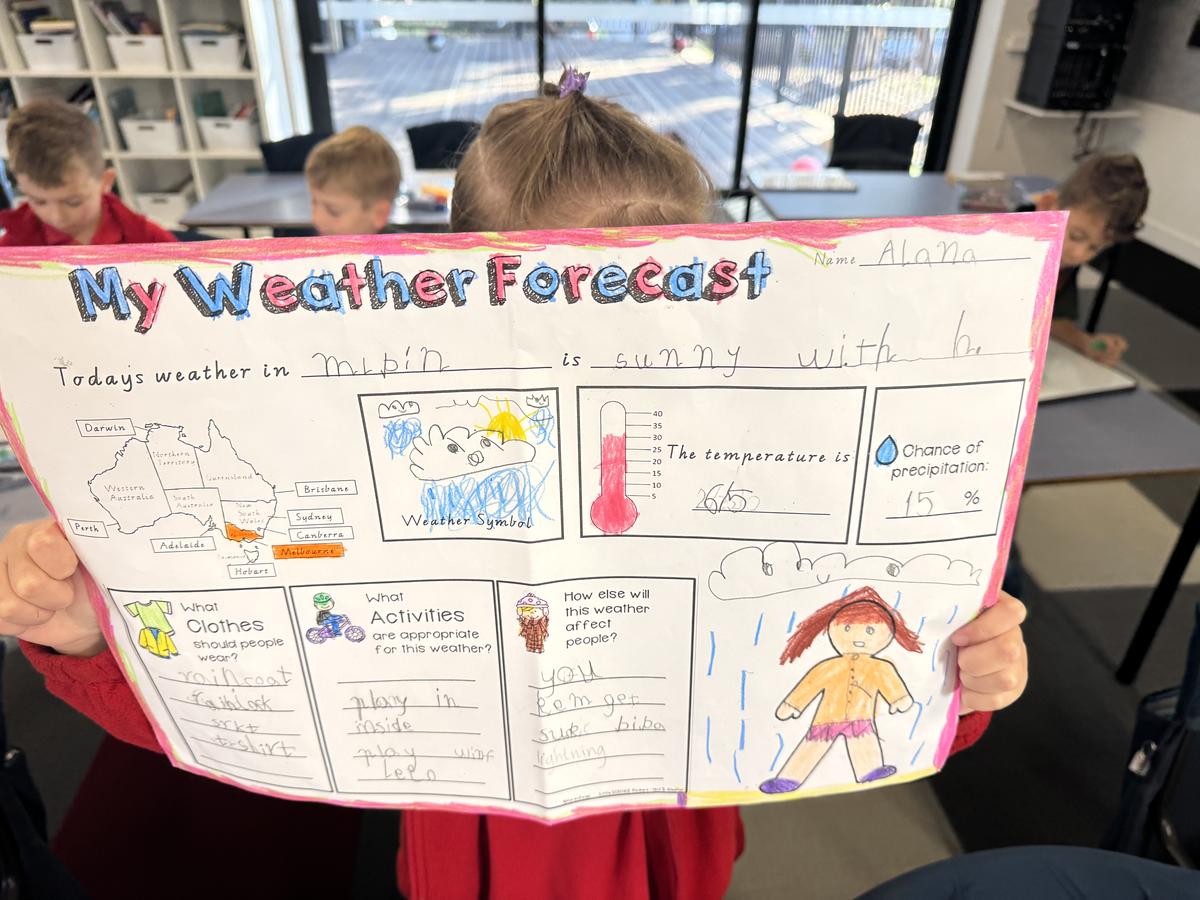 My Weather Forecast
Name Alana
Todays weather in is sunny with h
Darwin
Northern Territory
Queensland
Western Australia
South Australia
New South Wales
Brisbane
Sydney
Canberra
Perth
Adelaide
Melbourne
Hobart
Weather Symbol
40
35
30
25
20
15
10
5
The temperature is
Chance of
precipitation:
15 %
What
Clothes
should people
wear?
raincoat
t-shirt
What
Activities
are appropriate
for this weather?
play in
inside
play with
lego
How else will
this weather
affect
people?
you
can get
lightning